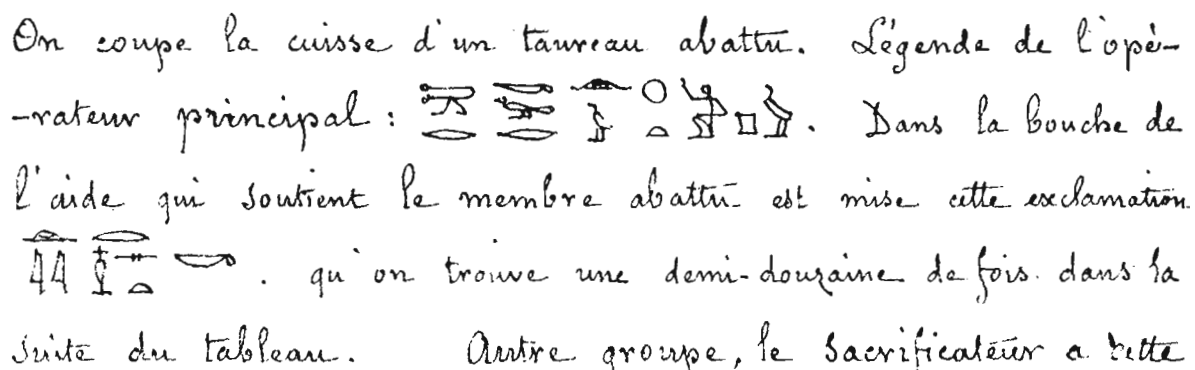 On coupe la cuisse d'un taureau abattu. Légende de l'opé-
-rateur principal : . Dans la bouche de
l'aide qui soutient le membre abattu est mise cette exclamation
. qu'on trouve une demi-douzaine de fois dans la
suite du tableau. Autre groupe, le sacrificateur a cette